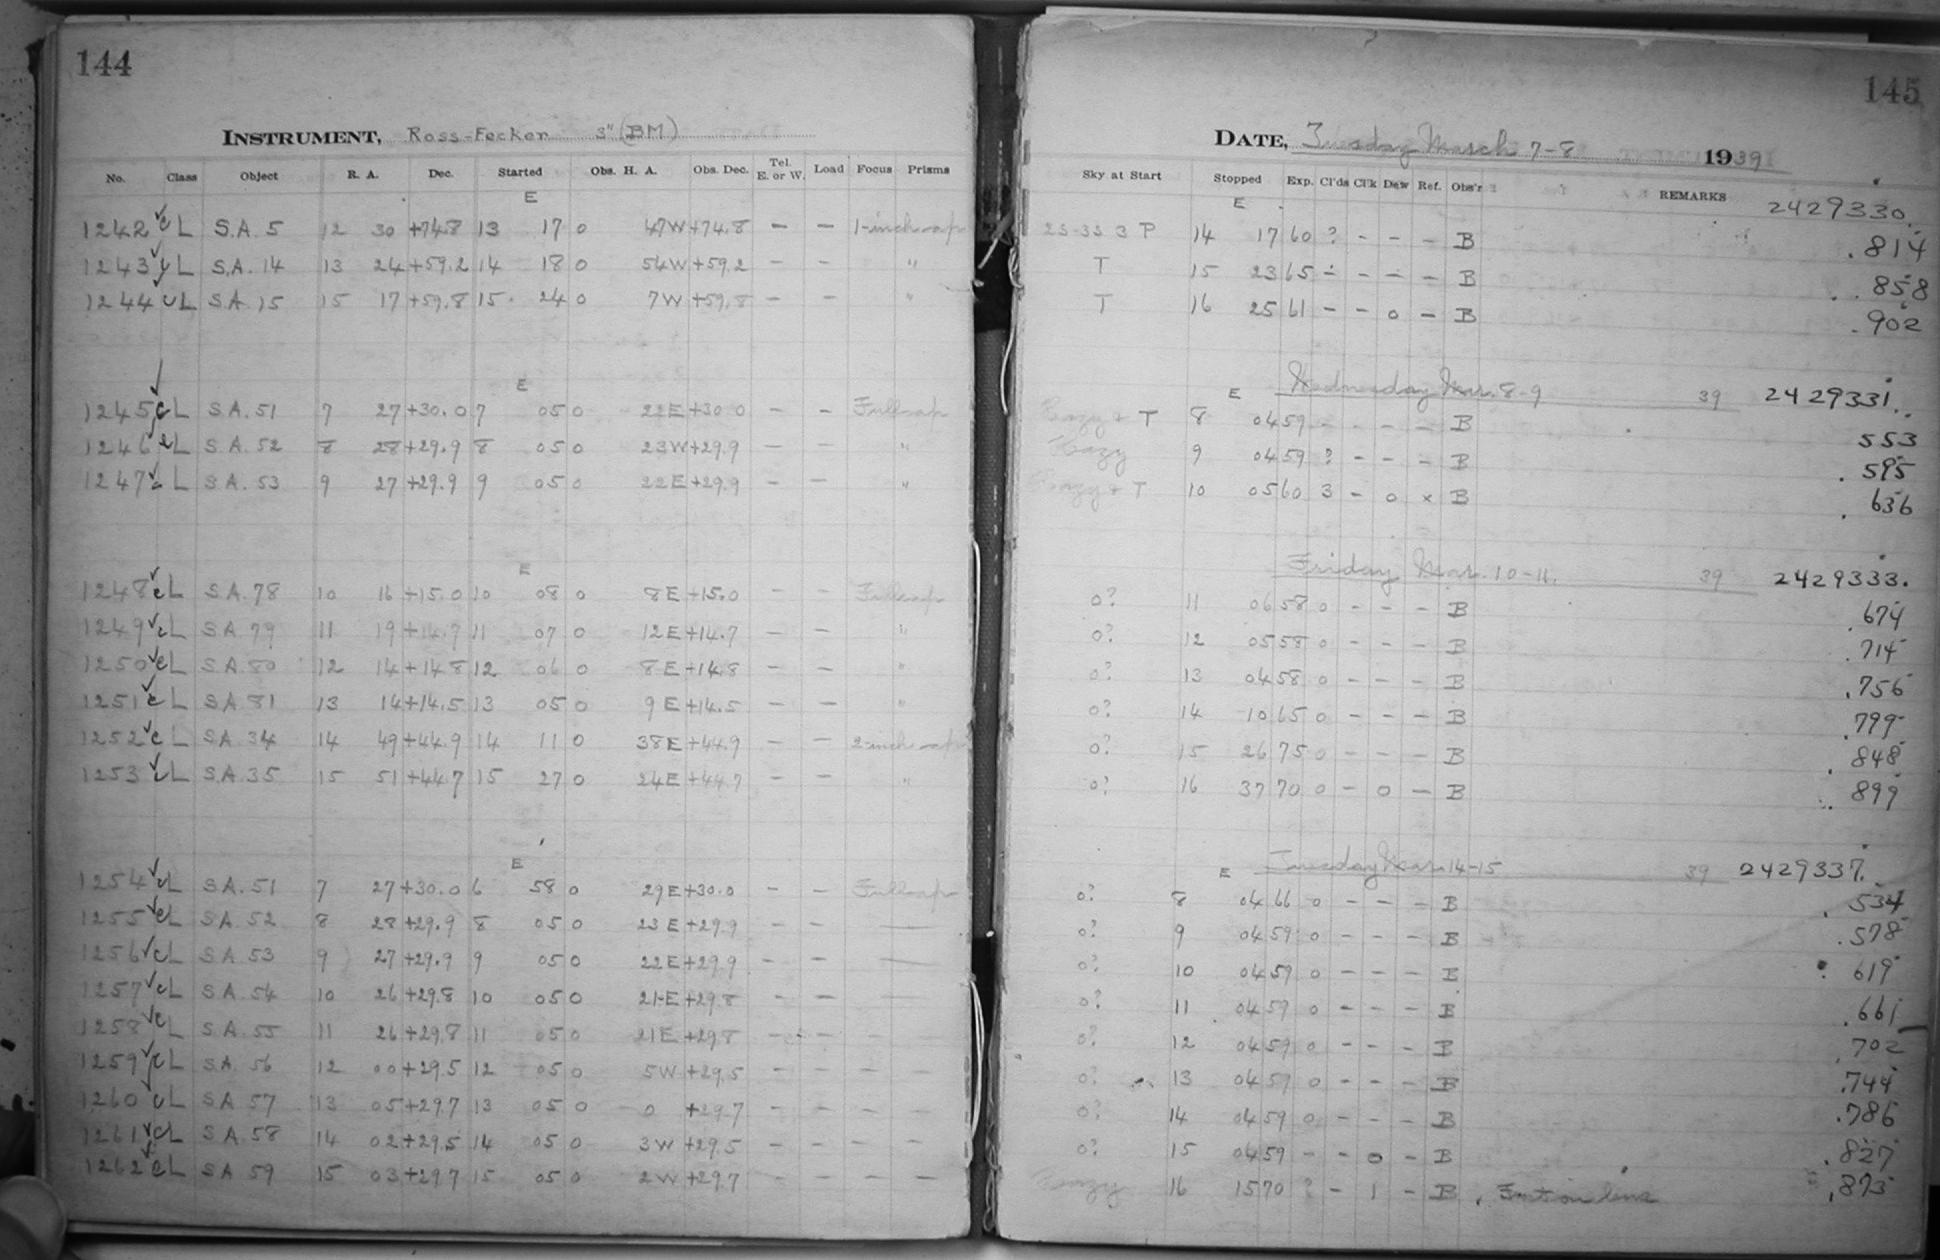 144
INSTRUMENT, Ross-Fecker 3" (BM)
No. Class Object R. A. Dec. Started Obs. H. A. Obs. Dec. Tel. E. or W. Load Focus Prisms
E
1242 c L S.A. 5 12 30 +74.8 13 17 0 47W +74.8 — — 1-inch ap
1243 L S.A. 14 13 24 +59.2 14 18 0 54W +59.2 — — "
1244 c L S.A. 15 15 17 +59.8 15 24 0 7W +59.8 — — "
E
1245 c L S.A. 51 7 27 +30.0 7 05 0 22E +30.0 — — Full ap
1246 c L S.A. 52 8 28 +29.9 8 05 0 23W +29.9 — — "
1247 c L S.A. 53 9 27 +29.9 9 05 0 22E +29.9 — — "
E
1248 c L S.A. 78 10 16 +15.0 10 08 0 8E +15.0 — — Full ap
1249 c L S.A. 79 11 19 +14.7 11 07 0 12E +14.7 — — "
1250 c L S.A. 80 12 14 +14.8 12 06 0 8E +14.8 — — "
1251 c L S.A. 81 13 14 +14.5 13 05 0 9E +14.5 — — "
1252 c L S.A. 34 14 49 +44.9 14 11 0 38E +44.9 — — 2-inch ap
1253 c L S.A. 35 15 51 +44.7 15 27 0 24E +44.7 — — "
E
1254 c L S.A. 51 7 27 +30.0 6 58 0 29E +30.0 — — Full ap
1255 c L S.A. 52 8 28 +29.9 8 05 0 23E +29.9 — — —
1256 c L S.A. 53 9 27 +29.9 9 05 0 22E +29.9 — — —
1257 c L S.A. 54 10 26 +29.8 10 05 0 21E +29.8 — — —
1258 c L S.A. 55 11 26 +29.8 11 05 0 21E +29.8 — — — —
1259 c L S.A. 56 12 00 +29.5 12 05 0 5W +29.5 — — — —
1260 c L S.A. 57 13 05 +29.7 13 05 0 0 +29.7 — — — —
1261 c L S.A. 58 14 02 +29.5 14 05 0 3W +29.5 — — — —
1262 c L S.A. 59 15 03 +29.7 15 05 0 2W +29.7 — — — —
145
DATE, Tuesday March 7-8 1939
Sky at Start Stopped Exp. Cl'ds Cl'k Dew Ref. Obs'r REMARKS
E 2429330.
2S-3S 3 P 14 17 60 ? — — — B .814
T 15 23 65 — — — — B .858
T 16 25 61 — — 0 — B .902
E Wednesday Mar. 8-9 39 2429331.
Hazy + T 8 04 59 — — — — B 553
Hazy 9 04 59 ? — — — B .595
Hazy + T 10 05 60 3 — 0 x B .636
Friday Mar. 10-11. 39 2429333.
0? 11 06 58 0 — — — B .674
0? 12 05 58 0 — — — B .714
0? 13 04 58 0 — — — B .756
0? 14 10 65 0 — — — B .799
0? 15 26 75 0 — — — B .848
0? 16 37 70 0 — 0 — B .899
E Tuesday Mar. 14-15 39 2429337.
0? 8 04 66 0 — — — B .534
0? 9 04 59 0 — — — B .578
0? 10 04 59 0 — — — B .619
0? 11 04 59 0 — — — B .661
0? 12 04 59 0 — — — B .702
0? 13 04 59 0 — — — B .744
0? 14 04 59 0 — — — B .786
0? 15 04 59 — — 0 — B .827
Hazy 16 15 70 ? — 1 — B Frost on lens .873